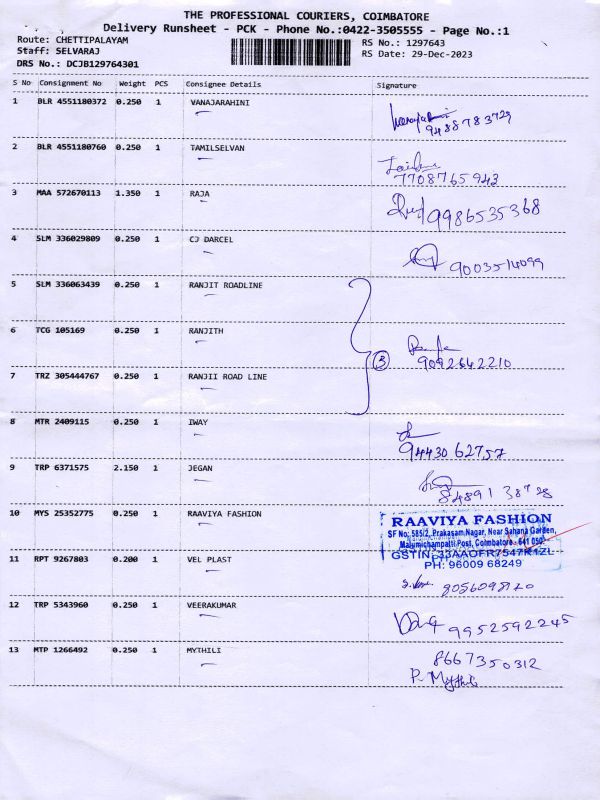 THE PROFESSIONAL COURIERS, COIMBATORE
Delivery Runsheet - PCK - Phone No.:0422-3505555 - Page No.:1
Route: CHETTIPALAYAM
Staff: SELVARAJ
DRS No.: DCJB129764301
RS No.: 1297643
RS Date: 29-Dec-2023
S No Consignment No Weight PCS Consignee Details Signature
1 BLR 4551180372 0.250 1 VANAJARAHINI
9488783729
2 BLR 4551180760 0.250 1 TAMILSELVAN
7708765943
3 MAA 572670113 1.350 1 RAJA
9986535368
4 SLM 336029809 0.250 1 CJ DARCEL
9003514099
5 SLM 336063439 0.250 1 RANJIT ROADLINE
6 TCG 105169 0.250 1 RANJITH
3 9092642210
7 TRZ 305444767 0.250 1 RANJII ROAD LINE
8 MTR 2409115 0.250 1 IWAY
9443062757
9 TRP 6371575 2.150 1 JEGAN
8489138728
10 MYS 25352775 0.250 1 RAAVIYA FASHION
RAAVIYA FASHION
SF No: 585/2, Prakasam Nagar, Near Sahana Garden,
Malumichampatti Post, Coimbatore - 641 050
GSTIN :33AAOFR7547K1ZL
PH: 96009 68249
11 RPT 9267803 0.200 1 VEL PLAST
8056098120
12 TRP 5343960 0.250 1 VEERAKUMAR
9952592245
13 MTP 1266492 0.250 1 MYTHILI
8667350312
P. Mythili